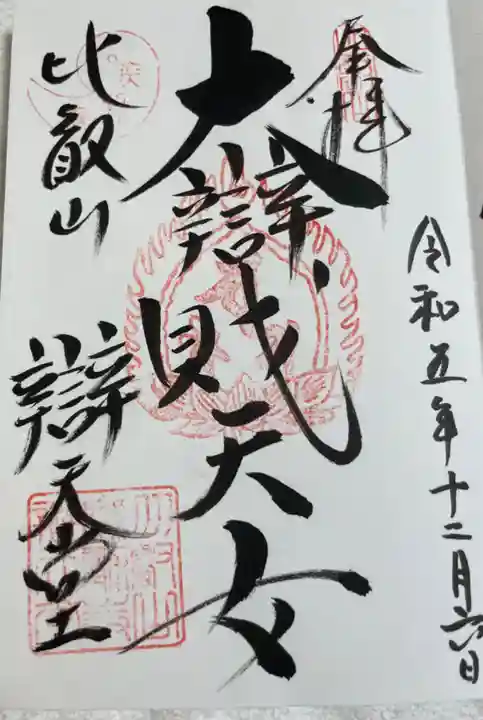 奉拝
令和五年十二月六日
大辯財天女
比叡山
辯天堂